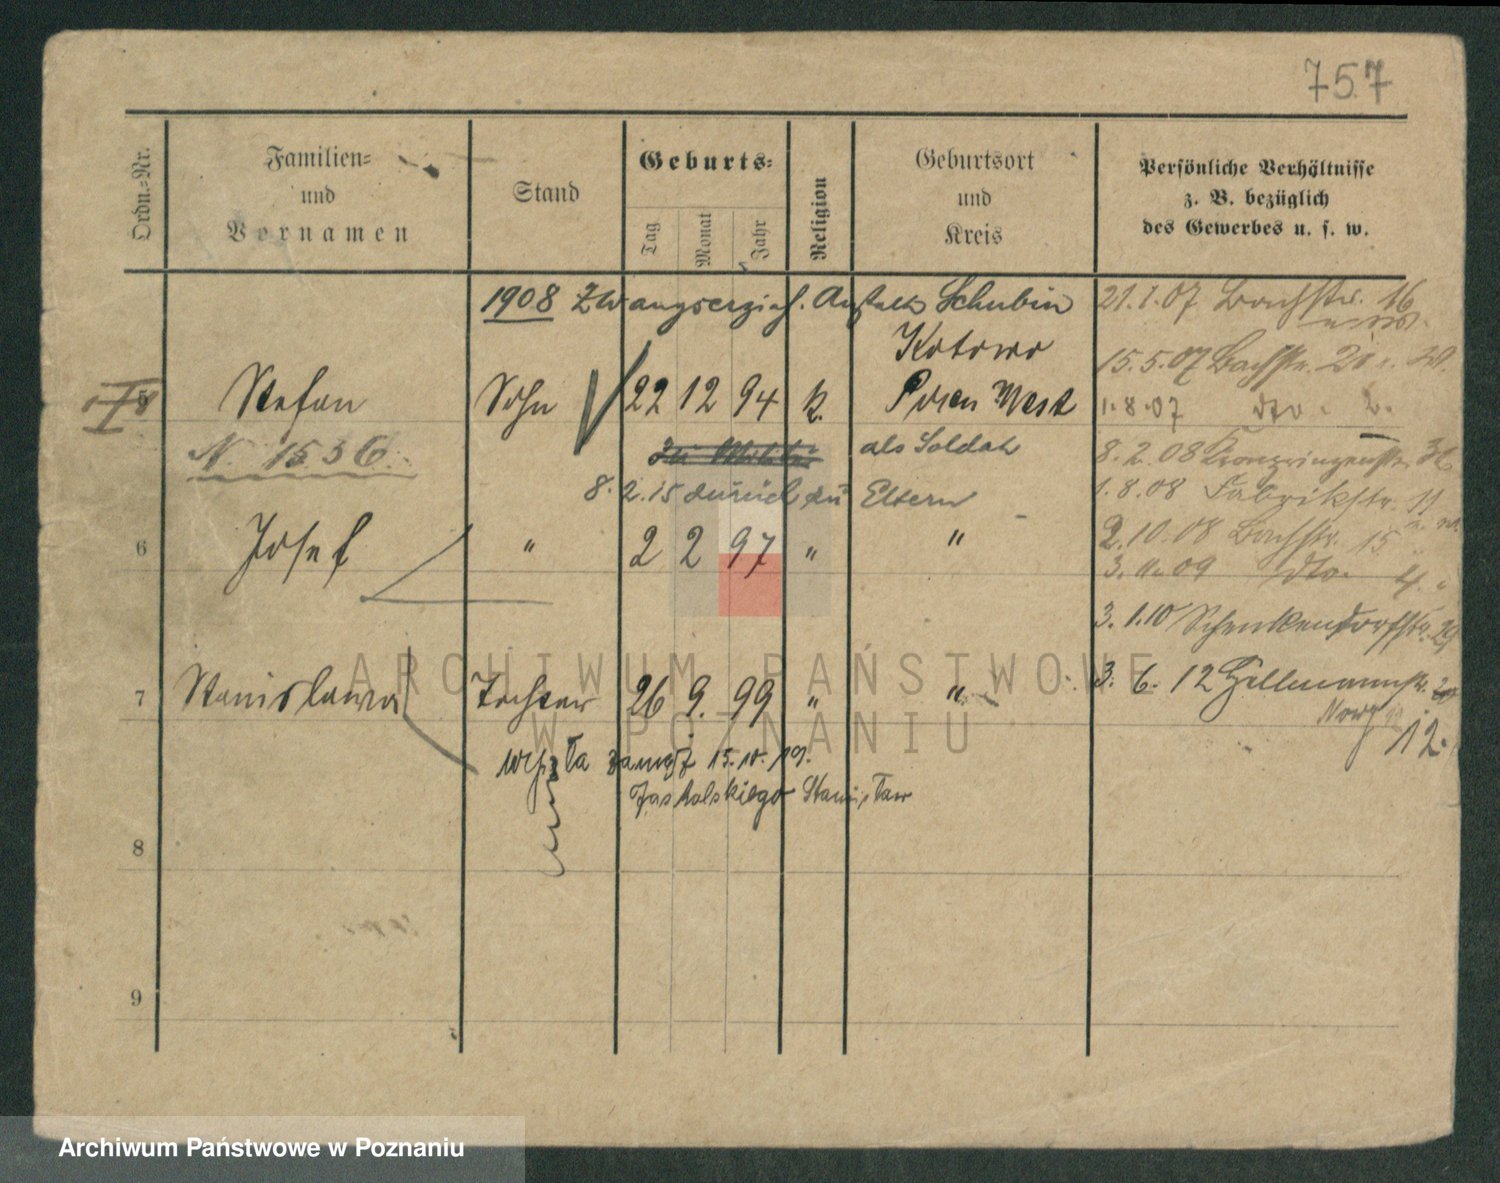 757
Ordn.-Nr.
Familien-
und
Vornamen
Stand
Geburts-
Tag
Monat
Jahr
Religion
Geburtsort
und
Kreis
Persönliche Verhältnisse
z. B. bezüglich
des Gewerbes u. s. w.
1908 Zwangserzieh. Anstalt Schubin
21.1.07 Bachstr. 16
Kotowo
15.5.07 Bachstr. 20
5 Stefan Sohn 22 12 94 k. Posen West
1.8.07 dto. 2.
N. 1536.
Zu Militär als Soldat
8.2.08 Kronprinzenstr.
8.2.15 zurück zu Eltern
1.8.08 Fabrikstr. 11
6 Josef " 2 2 97 " "
2.10.08 Bachstr. 15
3.11.09 dto. 4.
3.1.10 Schenkendorfstr. 29
7 Stanisława Tochter 26 9. 99 " "
3. 6. 12
12.
wyszła zamąż 15.10.19.
Stanisław
8
9
ARCHIWUM PAŃSTWOWE
W POZNANIU
Archiwum Państwowe w Poznaniu